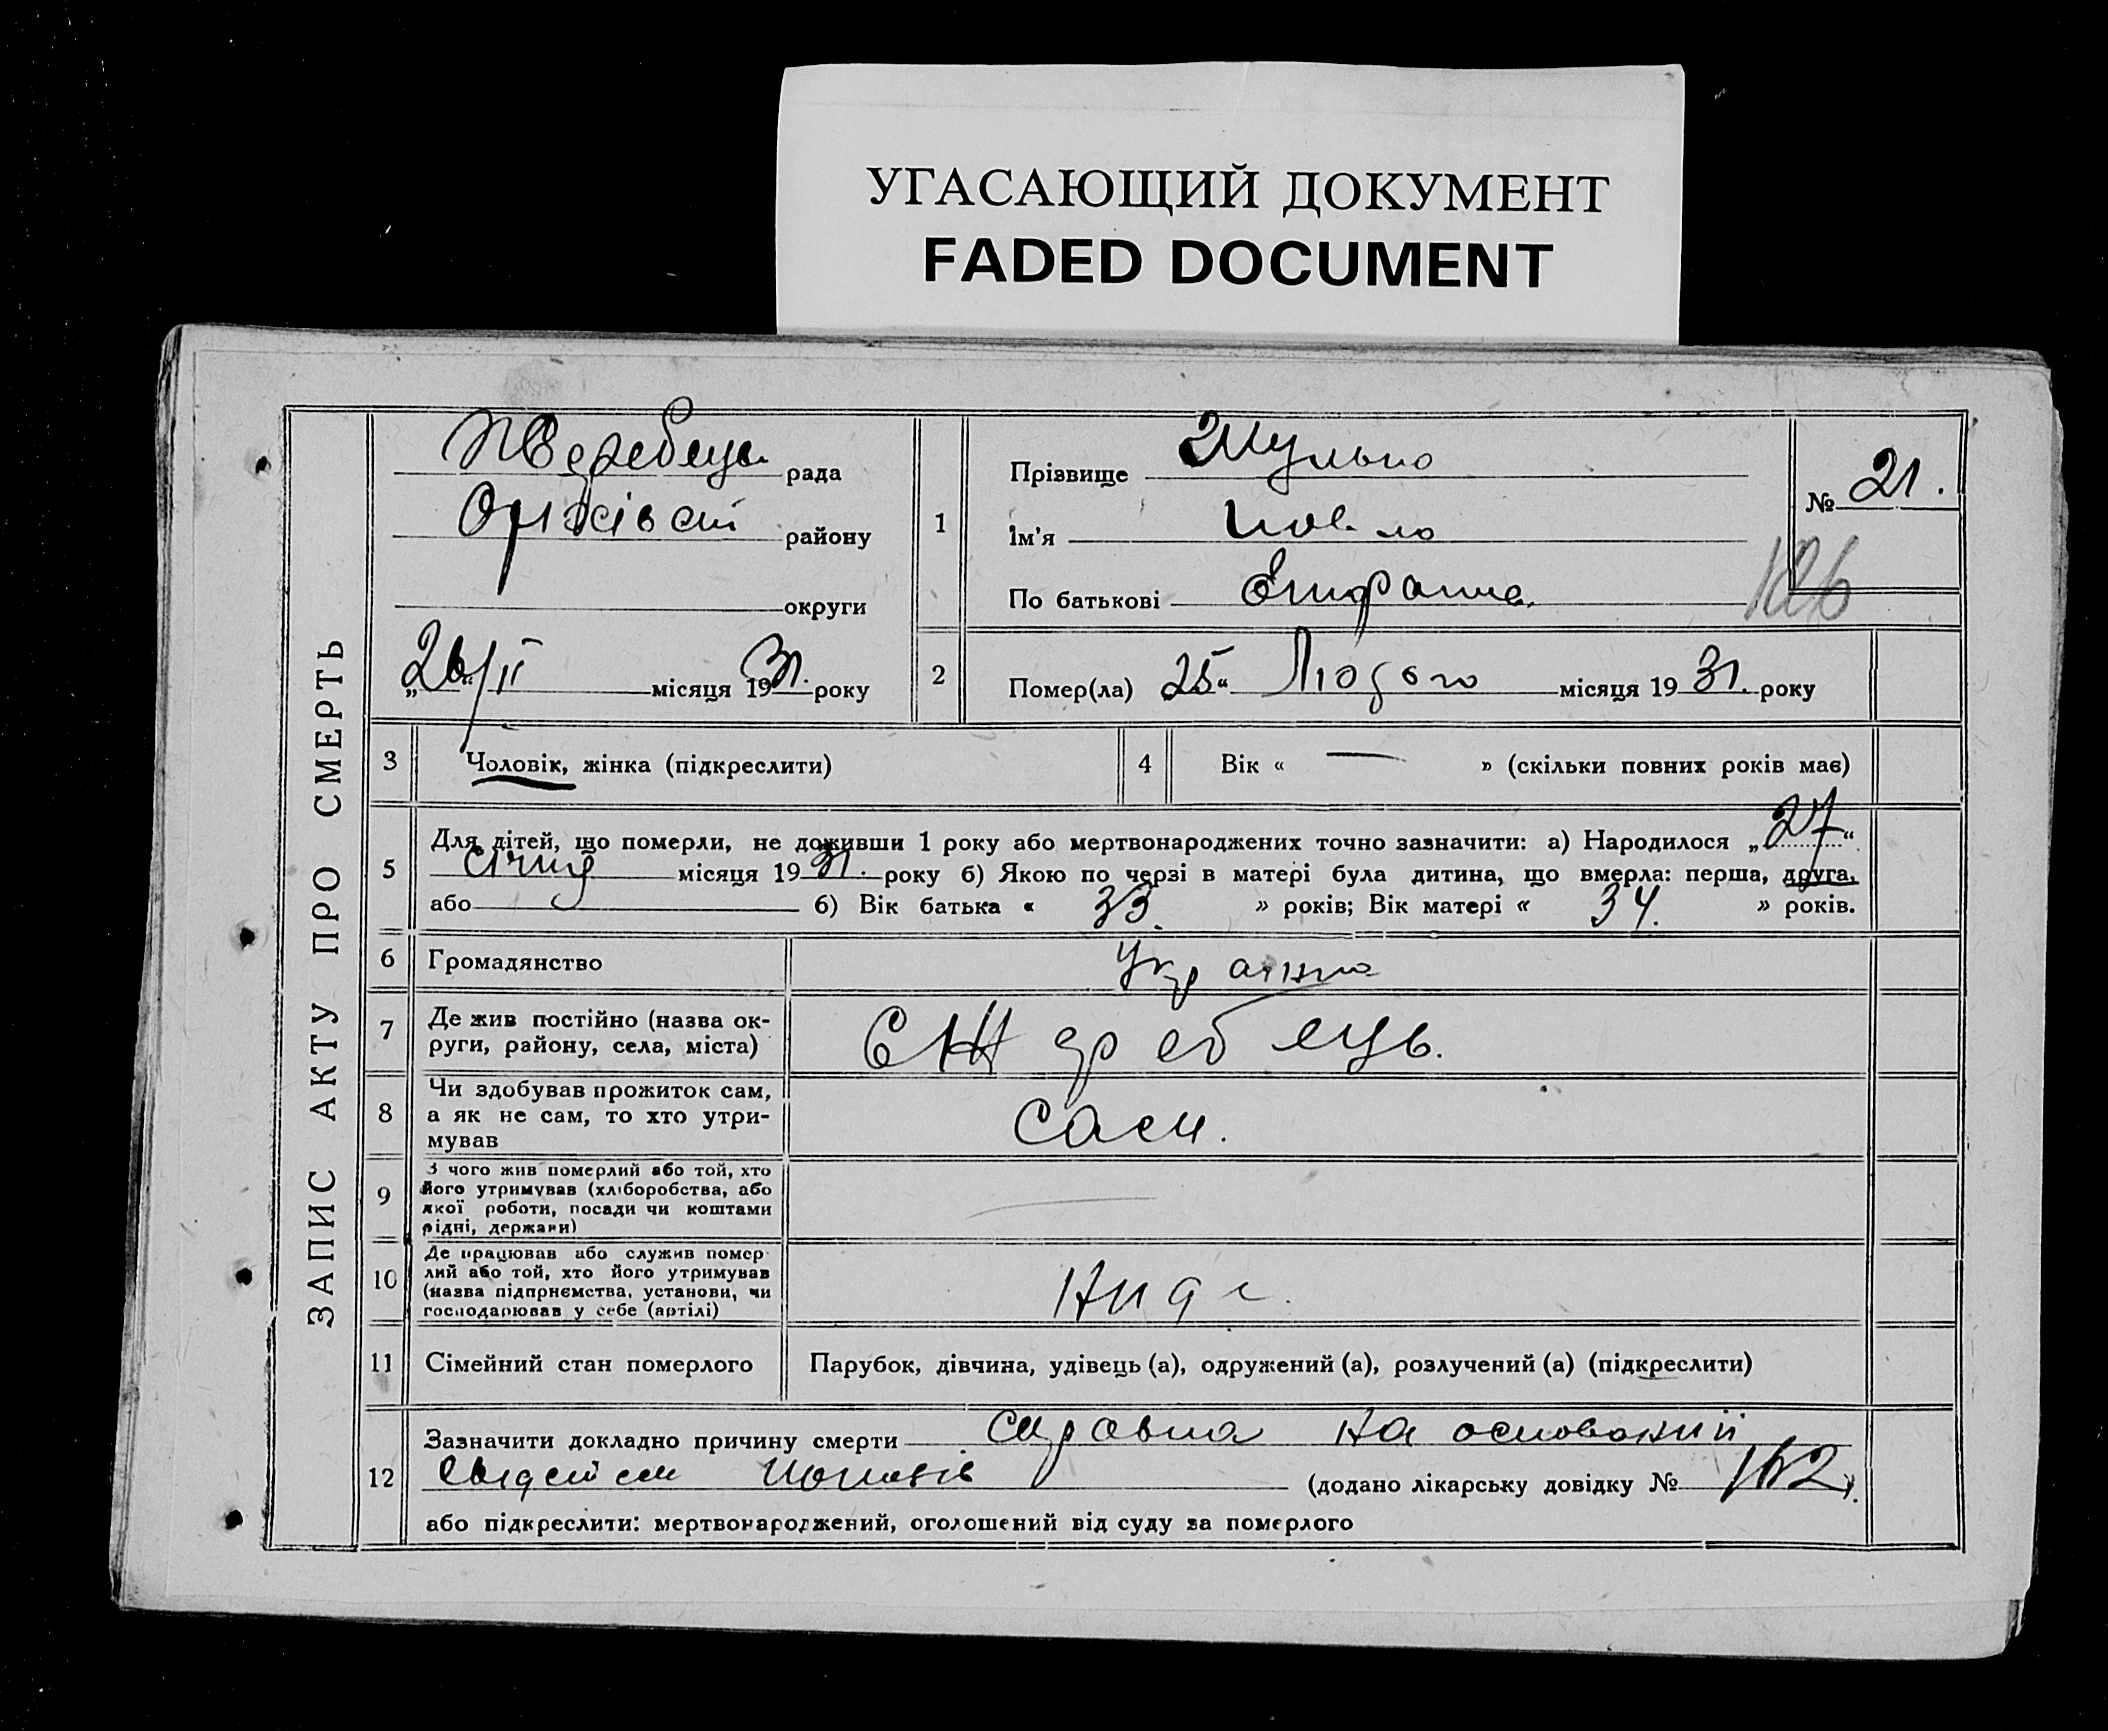 УГАСАЮЩИЙ ДОКУМЕНТ
FADED DOCUMENT
ЗАПИС АКТУ ПРО СМЕРТЬ
Жеребець рада
району
округи
26/II місяця 1931. року
1
Прізвище Шулько
Ім'я
По батькові
№ 21.
126
2
Помер(ла) 25 “ Лютого місяця 1931. року
3
Чоловік, жінка (підкреслити)
4
Вік « — » (скільки повних років має)
5
Для дітей, що померли, не доживши 1 року або мертвонароджених точно зазначити: а) Народилося „27“
Січня місяця 1931. року б) Якою по черзі в матері була дитина, що вмерла: перша, друга,
або 6) Вік батька « 33. » років; Вік матері « 34. » років.
6
Громадянство
7
Де жив постійно (назва ок-
руги, району, села, міста)
С Жеребець.
8
Чи здобував прожиток сам,
а як не сам, то хто утри-
мував
Сам.
9
З чого жив померлий або той, хто
його утримував (хліборобства, або
якої роботи, посади чи коштами
рідні, держави)
10
Де працював або служив помер-
лий або той, хто його утримував
(назва підприємства, установи, чи
господарював у себе (артілі)
11
Сімейний стан померлого
Парубок, дівчина, удівець (а), одружений (а), розлучений (а) (підкреслити)
12
Зазначити докладно причину смерти на оснований
(додано лікарську довідку № 162).
або підкреслити: мертвонароджений, оголошений від суду за померлого